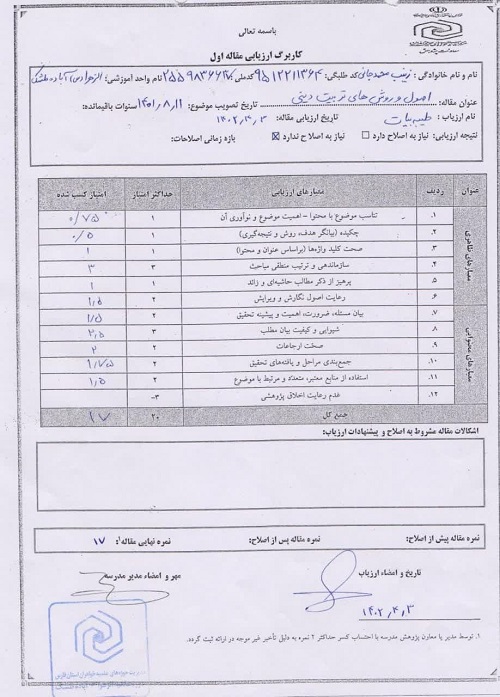 باسمه تعالی
کاربرگ ارزیابی مقاله اول
نام و نام خانوادگی: زینب محمدجانی کد طلبگی: ۹۵۱۲۲۱۱۳۶۴ کدملی: نام واحد آموزشی: الزهرا(س) آباده طشک
عنوان مقاله: اصول و روش های تربیت دینی تاریخ تصویب موضوع: ۱۴۰۱,۸,۱۱ سنوات باقیمانده:
نام ارزیاب: طیبه بیات تاریخ ارزیابی مقاله: ۱۴۰۲,۴,۳
نتیجه ارزیابی: نیاز به اصلاح دارد ☐ نیاز به اصلاح ندارد ☒ بازه زمانی اصلاحات:
عنوان ردیف معیارهای ارزیابی حداکثر امتیاز امتیاز کسب شده
معیارهای ظاهری
۱. تناسب موضوع با محتوا – اهمیت موضوع و نوآوری آن ۱ ۰/۷۵
۲. چکیده (بیانگر هدف، روش و نتیجه‌گیری) ۱ ۰/۵
۳. صحت کلید واژه‌ها (براساس عنوان و محتوا) ۱ ۱
۴. سازماندهی و ترتیب منطقی مباحث ۳ ۳
۵. پرهیز از ذکر مطالب حاشیه‌ای و زائد ۱ ۱
۶. رعایت اصول نگارش و ویرایش ۲ ۱,۵
معیارهای محتوایی
۷. بیان مسئله، ضرورت، اهمیت و پیشینه تحقیق ۲ ۱/۵
۸. شیوایی و کیفیت بیان مطلب ۳ ۲,۵
۹. صحت ارجاعات ۲ ۲
۱۰. جمع‌بندی مراحل و یافته‌های تحقیق ۲ ۱,۷۵
۱۱. استفاده از منابع معتبر، متعدد و مرتبط با موضوع ۲ ۱,۵
۱۲. عدم رعایت اخلاق پژوهشی ۳-
جمع کل ۲۰ ۱۷
اشکالات مقاله مشروط به اصلاح و پیشنهادات ارزیاب:
نمره مقاله پیش از اصلاح: نمره مقاله پس از اصلاح: نمره نهایی مقاله۱: ۱۷
تاریخ و امضاء ارزیاب مهر و امضاء مدیر مدرسه
۱۴۰۲,۴,۳
۱. توسط مدیر یا معاون پژوهش مدرسه با احتساب کسر حداکثر ۲ نمره به دلیل تأخیر غیر موجه در ارائه ثبت گردد.